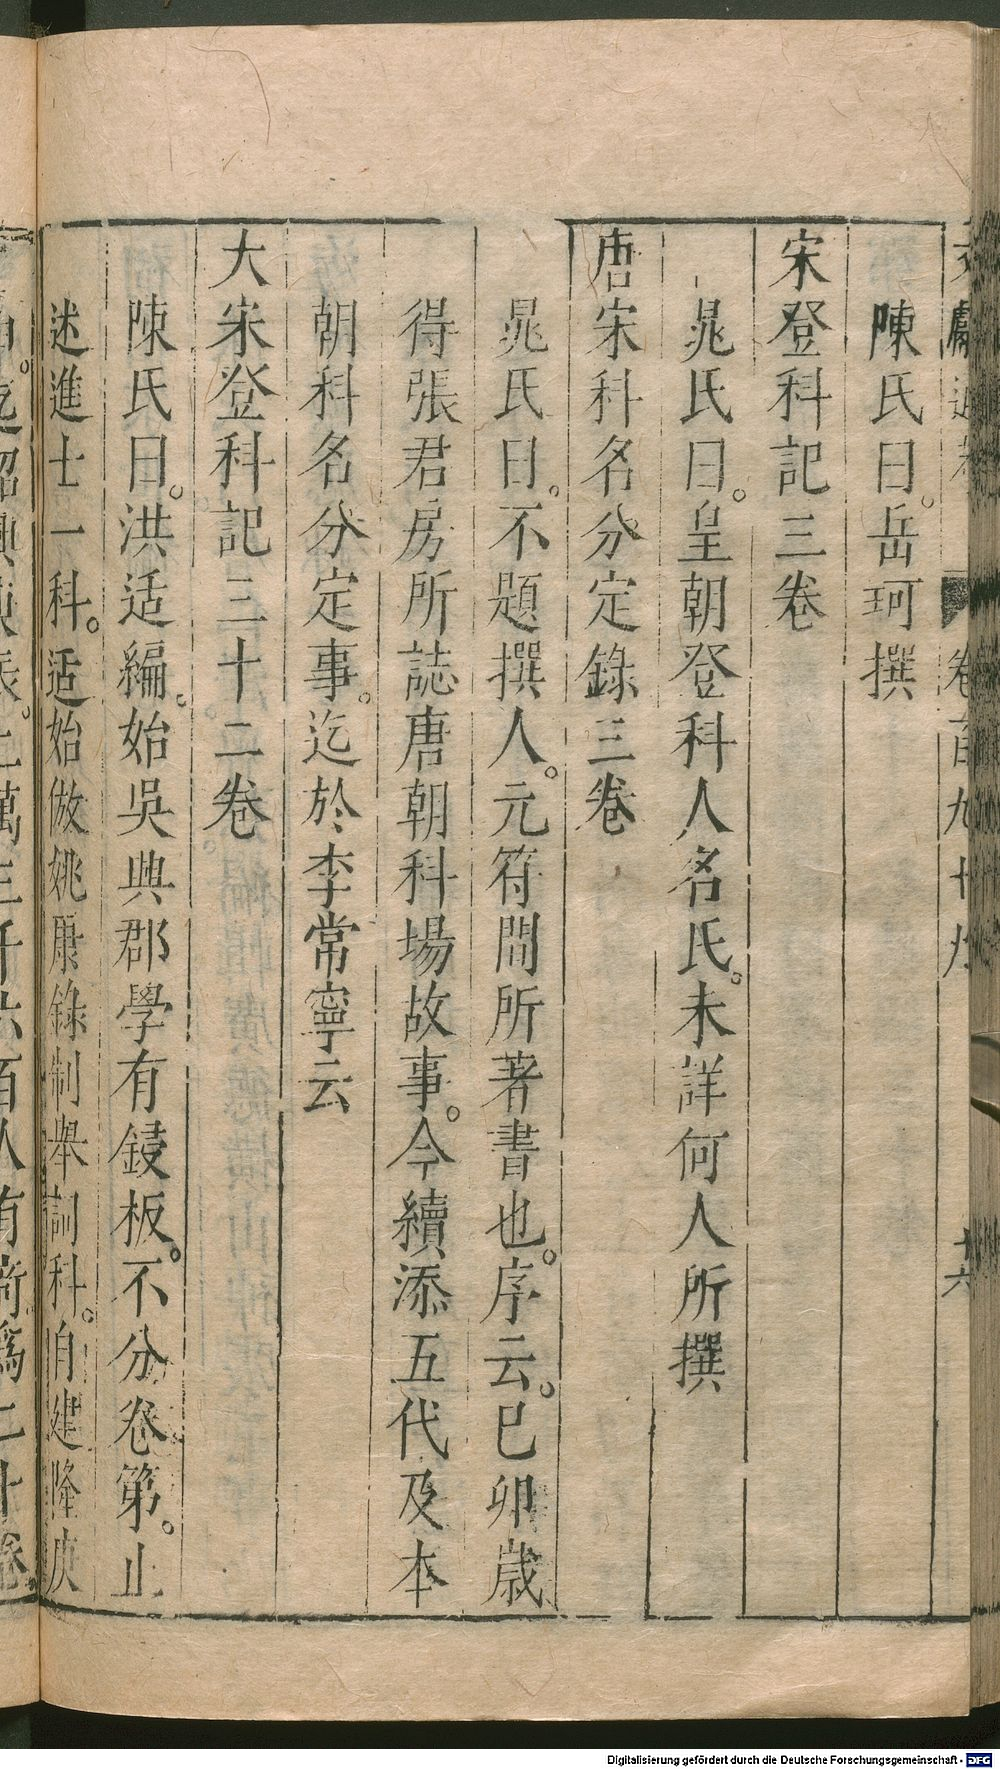 文獻通考 卷百九十九 十六
陳氏曰。岳珂撰
宋登科記三卷
晁氏曰。皇朝登科人名氏。未詳何人所撰
唐宋科名分定錄三卷
晁氏曰。不題撰人。元符間所著書也。序云。已卯歲
得張君房所誌唐朝科場故事。今續添五代及本
朝科名分定事。迄於李常寧云
大宋登科記三十二卷
陳氏曰。洪适編。始吳興郡學有鋟板。不分卷第。止
述進士一科。适始倣姚康錄制舉詞科。自建隆庚
Digitalisierung gefördert durch die Deutsche Forschungsgemeinschaft - DFG